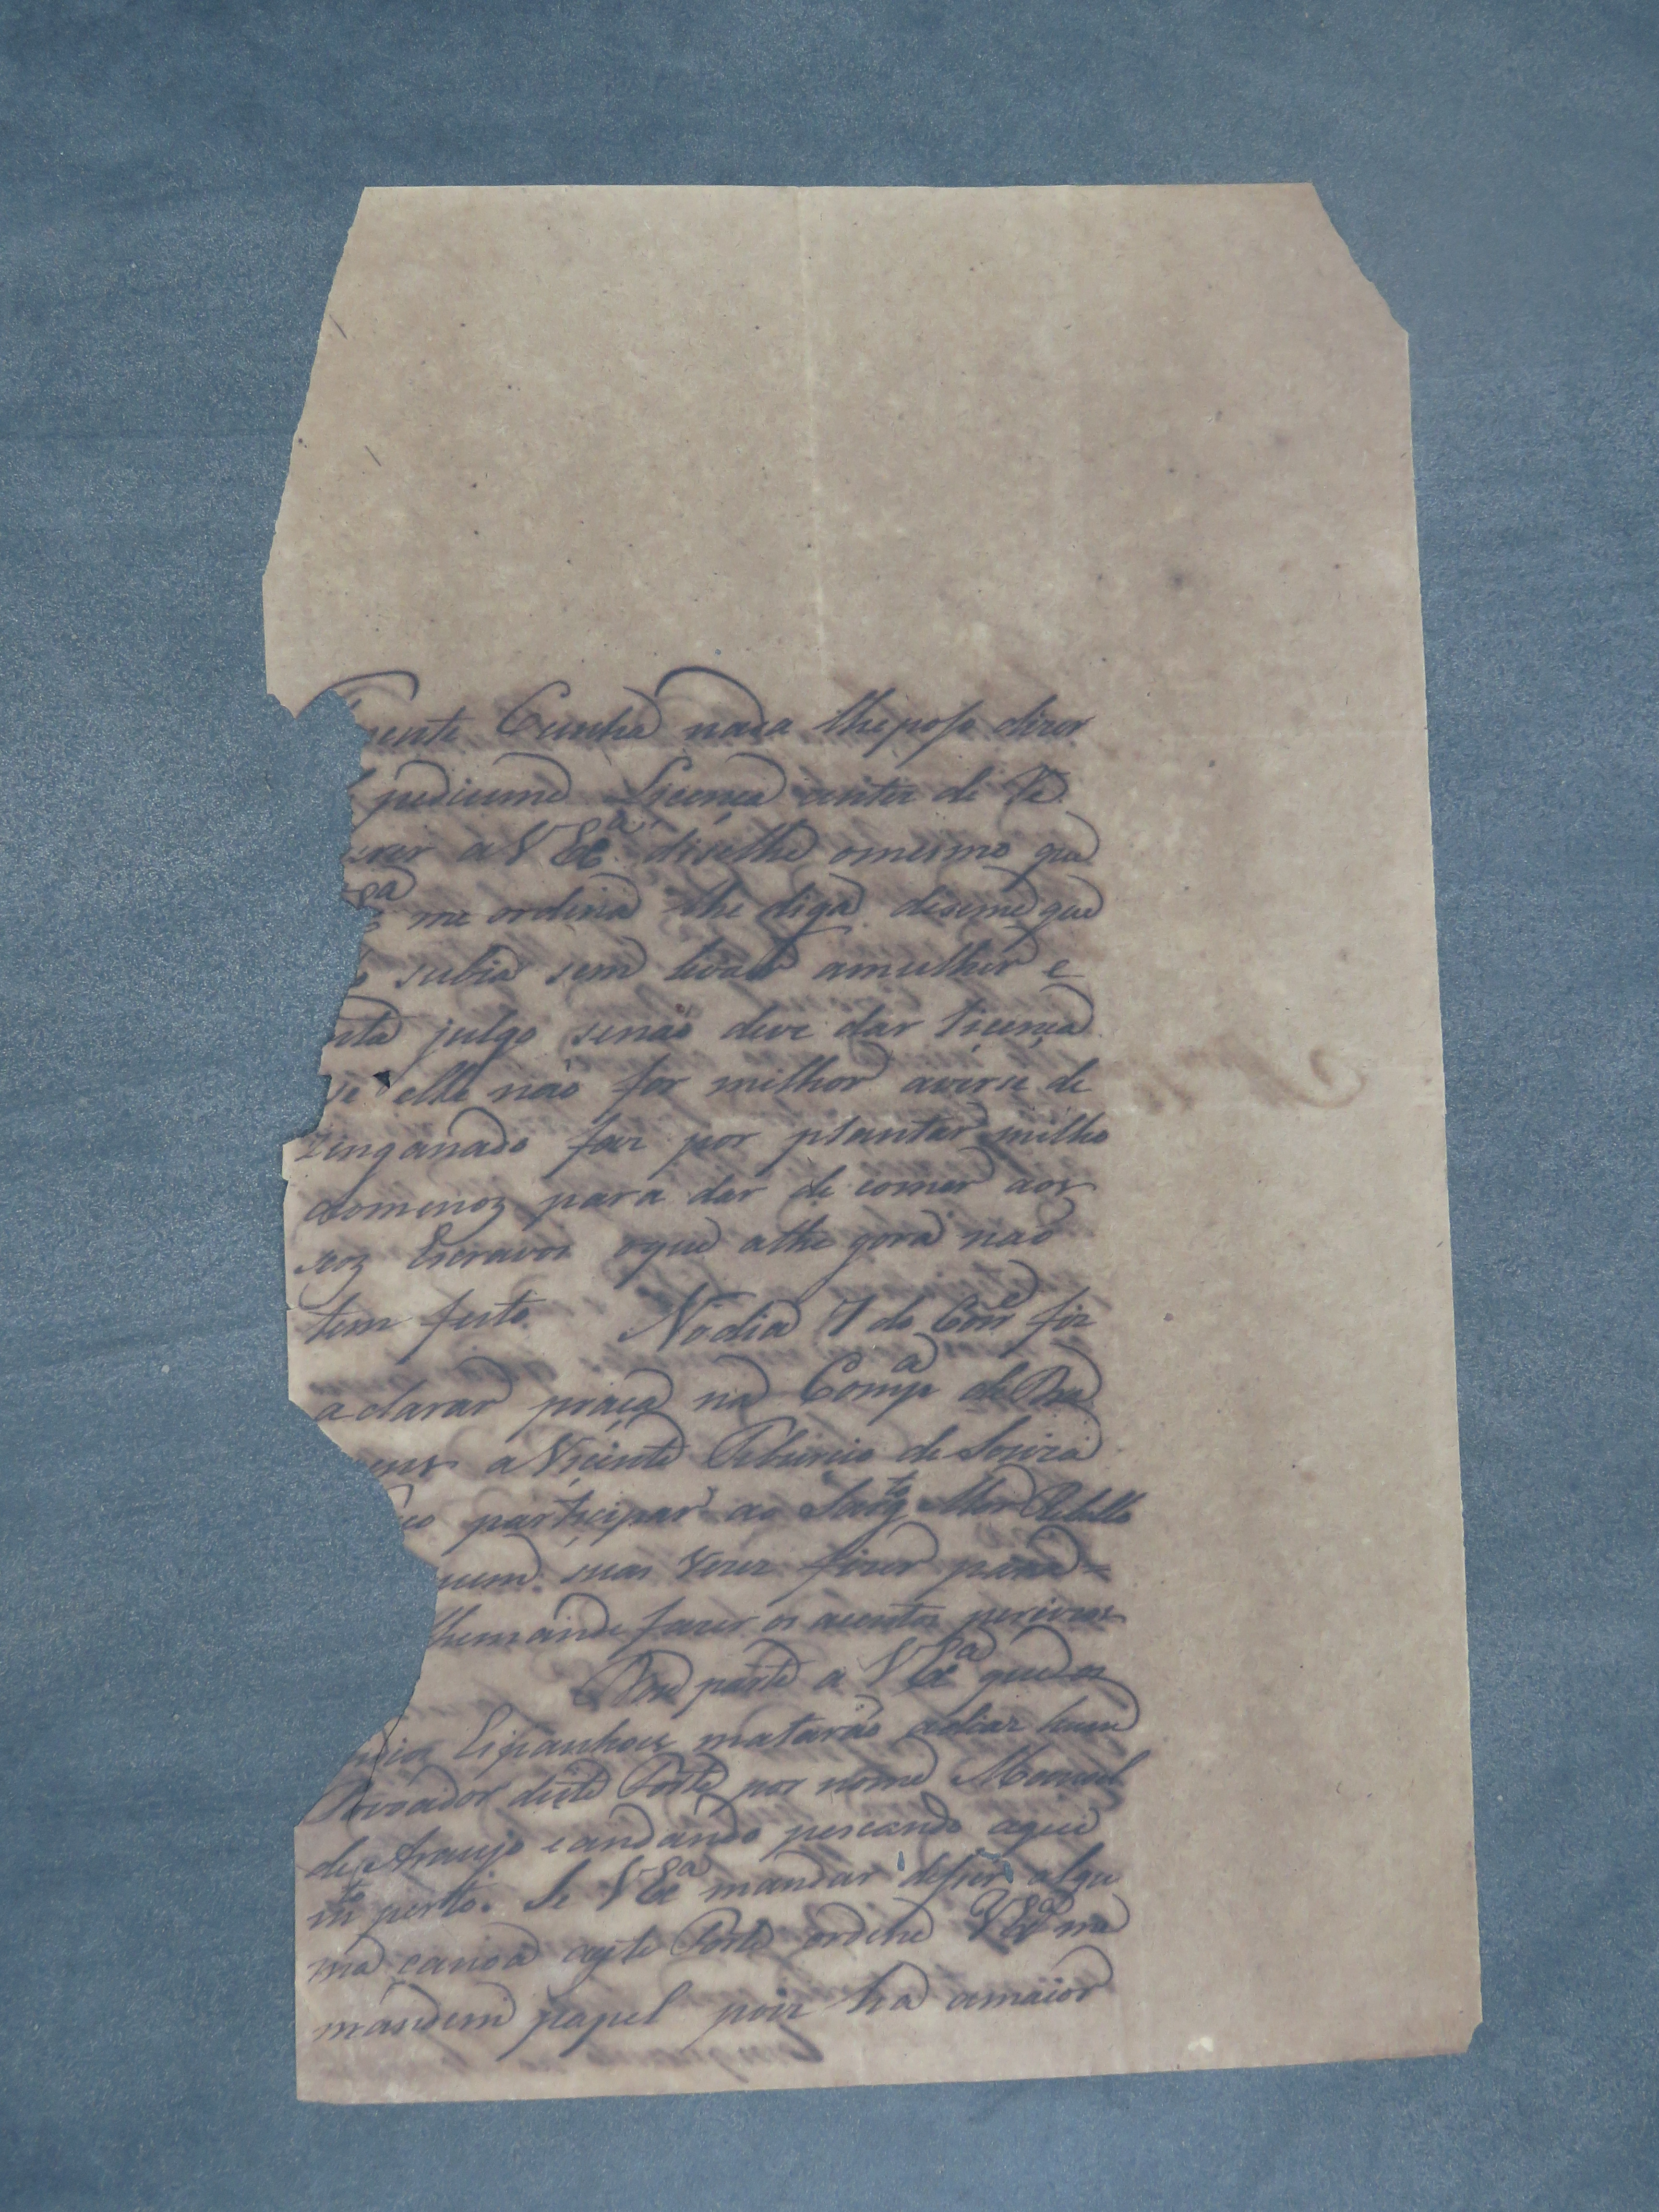 ente Cunha nada lhe poso dizer
pediume Licença antes de Re
erer a V Exª diselhe omesmo que
me ordena lhe diga diseme que
subia sem levar amulher e
nta julgo senão deve dar Licença
se elle não for milhor averse de
zenganado faz por plantar milho
aomenoz para dar de comer aos
seoz Escravos oque athe gora não
tem feito No dia 7 do Corre fiz
aclarar praça na Compª de
ens a Vicente Ribeiro de Souza
participar ao Sargto Mor Rebello
quem suas vezes fizer para =
lhemande fazer os acentos percizos
Dou parte a V Exª que os
Espanhois matarão hum
Povoador deste Ponto por nome Manoel
de Araujo e andando pescando aqui
mto perto. Se V Exª mandar descer algu
ma canoa aeste Ponto ordene V Exª me
mandem papel pois ha amaior